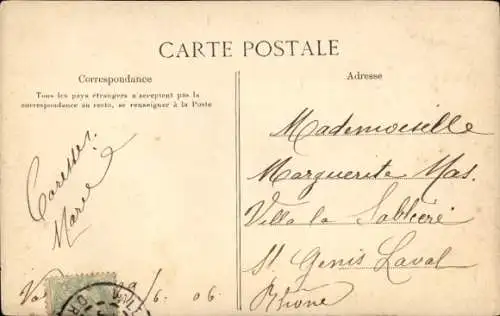 CARTE POSTALE
Correspondance
Tous les pays étrangers n'acceptent pas la
correspondance au recto, se renseigner à la Poste
Caresses.
Marie
6 06
Adresse
Mademoiselle
Marguerite Mas.
Villa la Sablière
St Genis Laval
Rhône